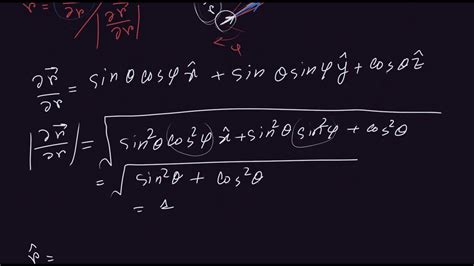 r̂ = ∂r⃗/∂r / |∂r⃗/∂r|
r̂
φ
∂r⃗/∂r = sinθcosφ x̂ + sinθsinφ ŷ + cosθ ẑ
|∂r⃗/∂r| = √(sin²θcos²φ x̂ + sin²θsin²φ + cos²θ)
= √(sin²θ + cos²θ)
= 1
r̂ =